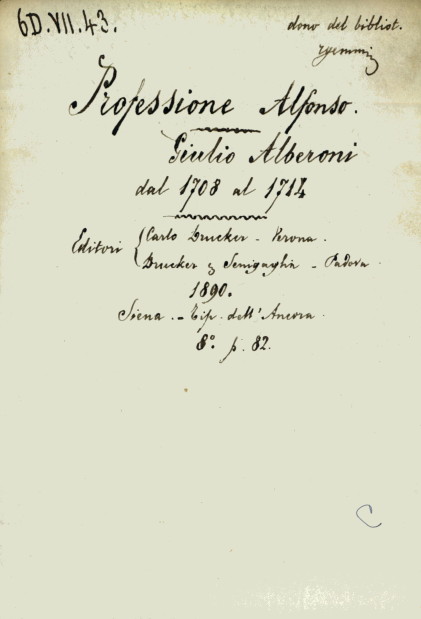 6D.VII.43.
dono del bibliot.
Professione Alfonso.
Giulio Alberoni
dal 1708 al 1714
Editori { Carlo Drucker - Verona.
Drucker & Senigaglia - Padova.
1890.
Siena. - Tip. dell'Ancora.
8° p. 82.
C